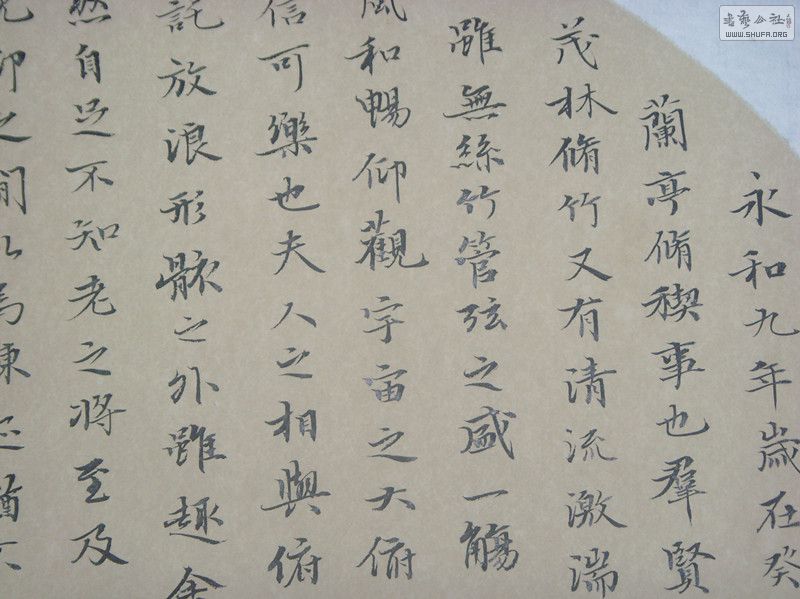 永和九年歲在癸
蘭亭脩稧事也羣賢
茂林脩竹又有清流激湍
雖無絲竹管弦之盛一觴
風和暢仰觀宇宙之大俯
信可樂也夫人之相與俯
託放浪形骸之外雖趣
然自足不知老之將至及
仰之間以為陳迹猶不
書藝公社
WWW.SHUFA.ORG